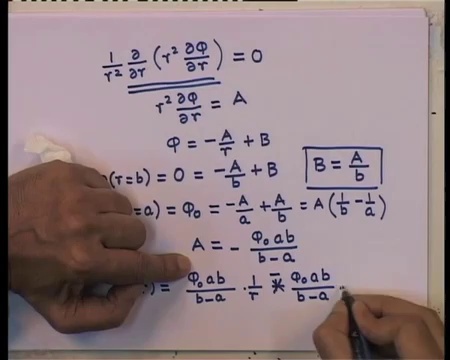 1/r² ∂/∂r (r² ∂φ/∂r) = 0
r² ∂φ/∂r = A
φ = -A/r + B
(r=b) = 0 = -A/b + B
B = A/b
=a) = φ₀ = -A/a + A/b = A(1/b - 1/a)
A = - φ₀ab/b-a
) = φ₀ab/b-a · 1/r - φ₀ab/b-a ·